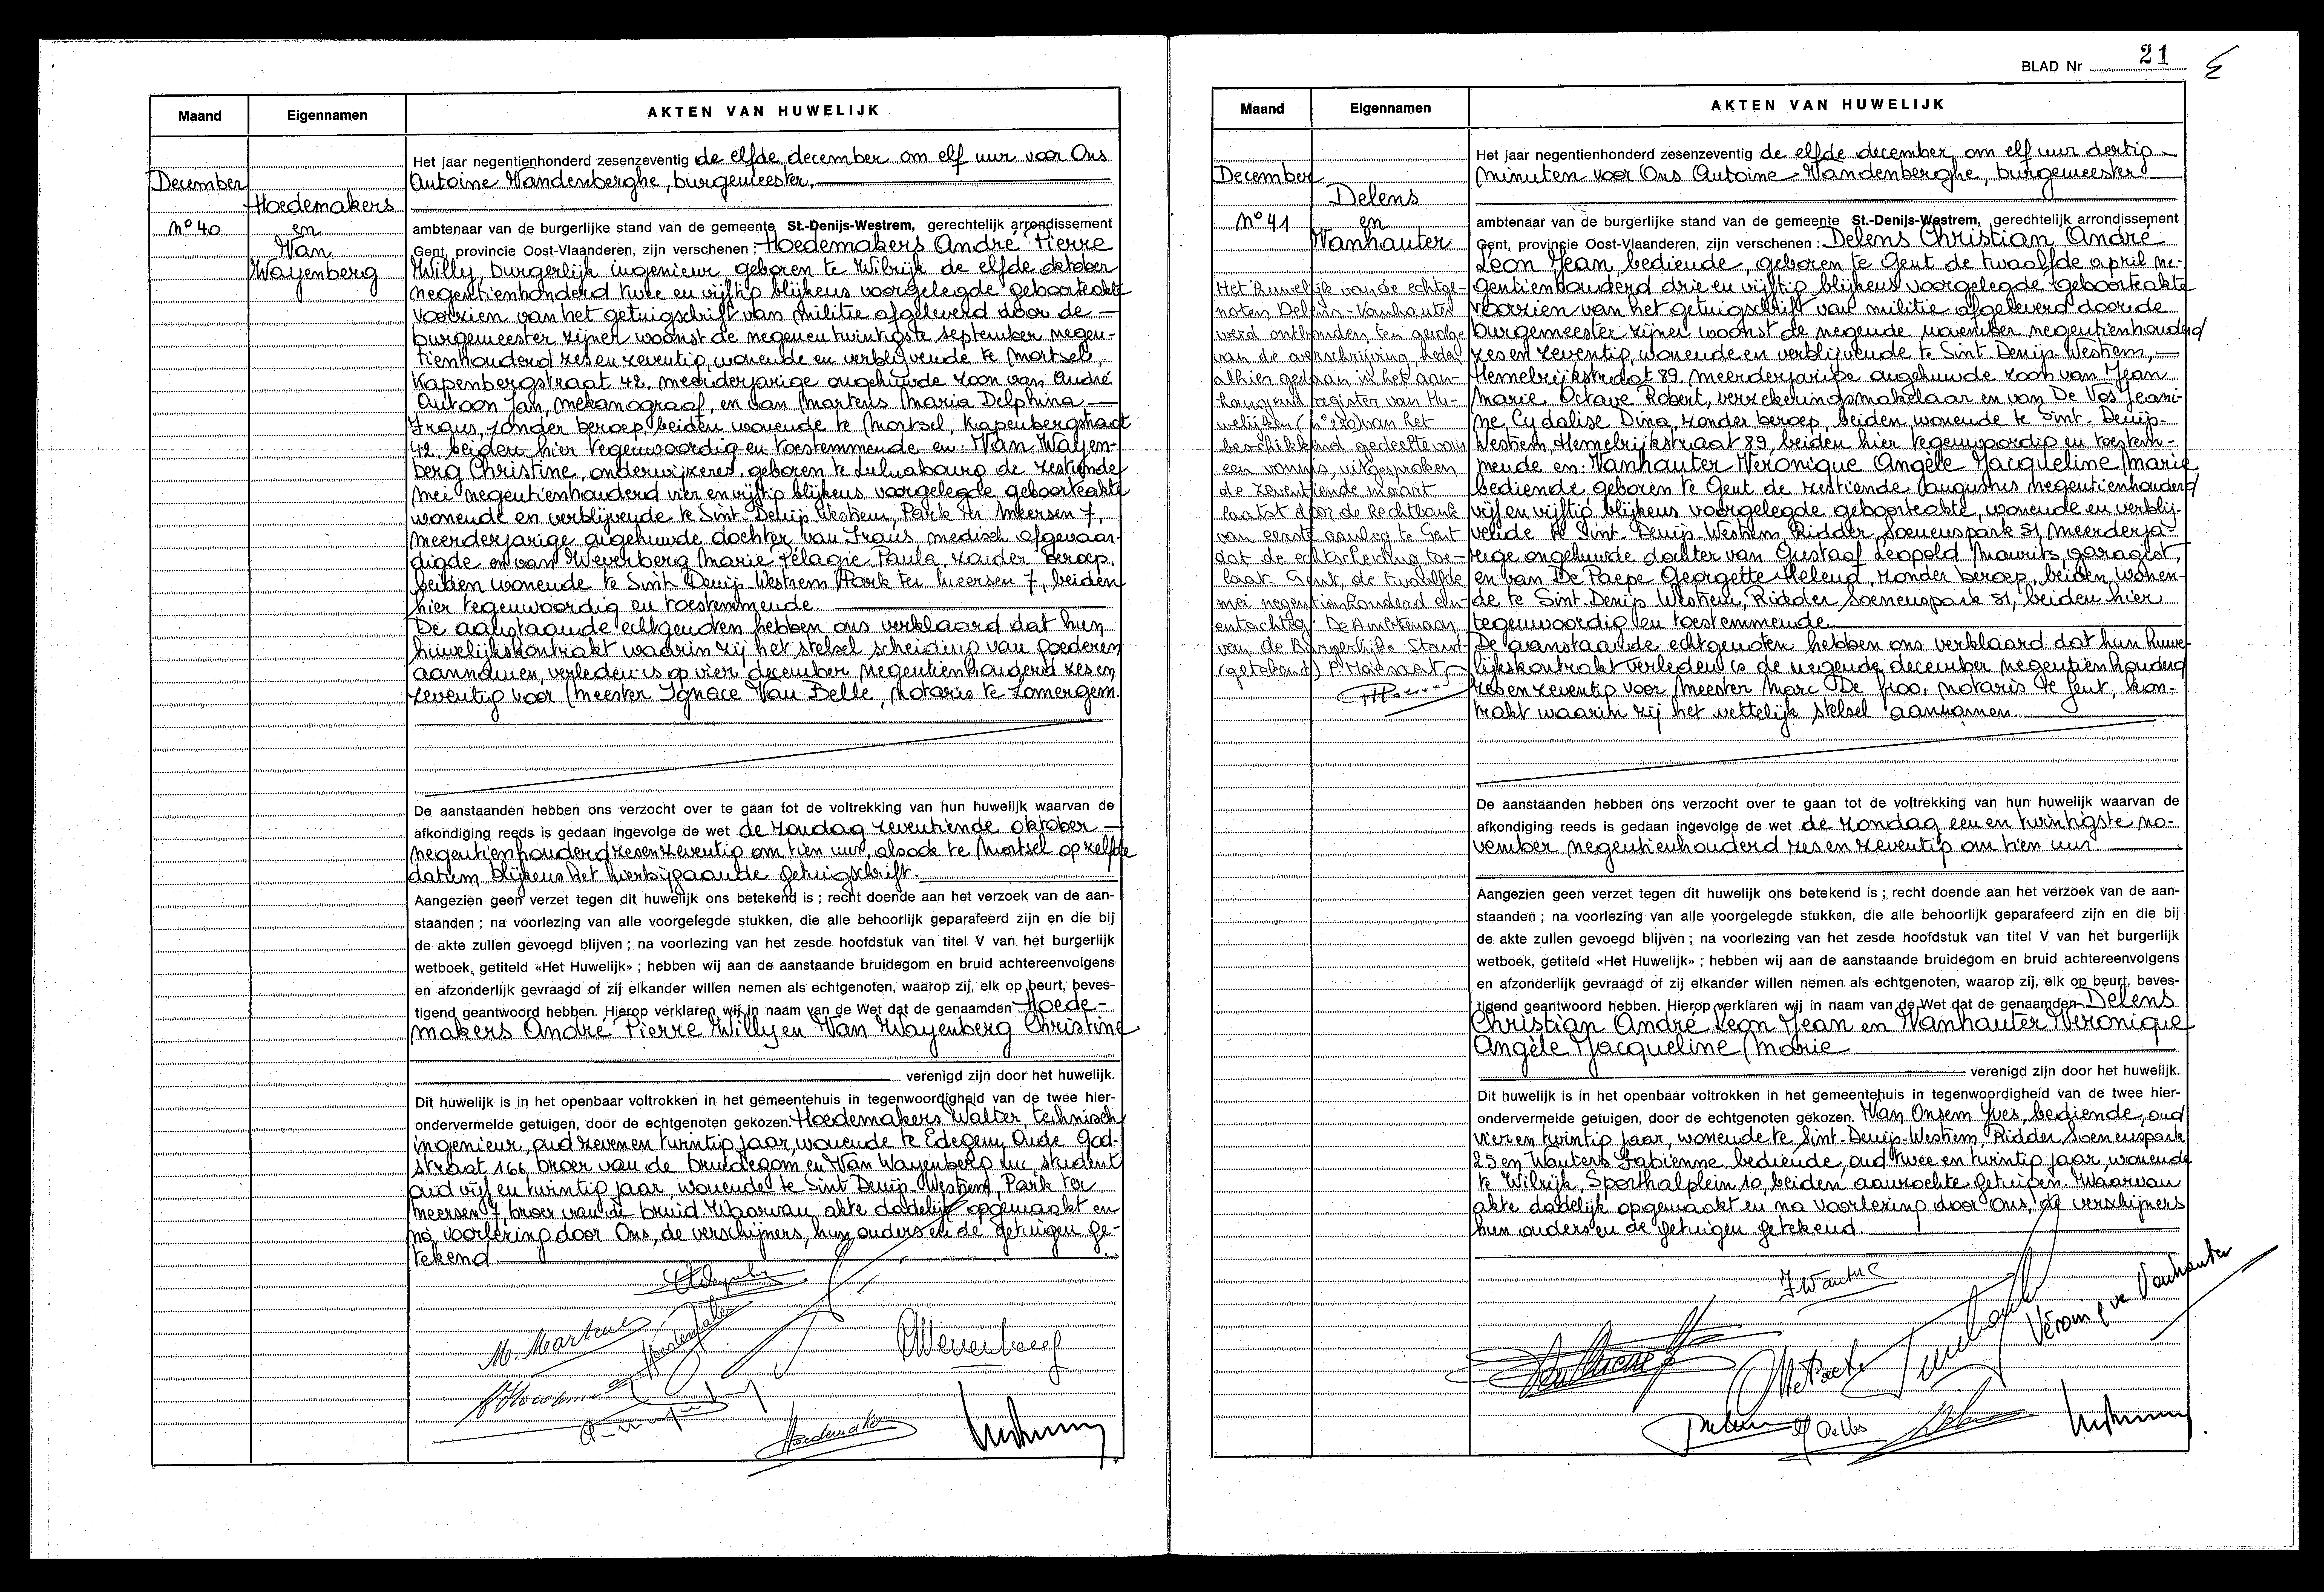 Maand
Eigennamen
AKTEN VAN HUWELIJK
December
Hoedemakers
N° 40
en
Van
Wayenberg
Het jaar negentienhonderd zesenzeventig de elfde december om elf uur voor Ons
Antoine Vandenberghe, burgemeester,
ambtenaar van de burgerlijke stand van de gemeente St.-Denijs-Westrem, gerechtelijk arrondissement
Gent, provincie Oost-Vlaanderen, zijn verschenen : Hoedemakers André Pierre
Willy, burgerlijk ingenieur geboren te Wilrijk de elfde oktober
negentienhonderd twee en vijftig blijkens voorgelegde geboorteakte
voorzien van het getuigschrift van militie afgeleverd door de
burgemeester zijner woonst de negen en twintigste september negen-
tienhonderd zes en zeventig, wonende en verblijvende te Mortsel,
Kapenbergstraat 42, meerderjarige ongehuwde zoon van André
Antoon Jan, mekanograaf, en van Martens Maria Delphina
Frans, zonder beroep, beiden wonende te Mortsel, Kapenbergstraat
42, beiden hier tegenwoordig en toestemmende en: Van Wayen-
berg Christine, onderwijzeres, geboren te Luluabourg de zestiende
mei negentienhonderd vier en vijftig blijkens voorgelegde geboorteakte
wonende en verblijvende te Sint-Denijs-Westrem, Park ter Meersen 7,
meerderjarige ongehuwde dochter van Frans, medisch afgevaar-
digde en van Weverberg Marie Pélagie Paula, zonder beroep,
beiden wonende te Sint-Denijs-Westrem Park ter Meersen 7, beiden
hier tegenwoordig en toestemmende.
De aanstaande echtgenoten hebben ons verklaard dat hun
huwelijkskontrakt waarin zij het stelsel scheiding van goederen
aannamen, verleden is op vier december negentienhonderd zes en
zeventig voor Meester Ignace Van Belle, notaris te Zomergem.
De aanstaanden hebben ons verzocht over te gaan tot de voltrekking van hun huwelijk waarvan de
afkondiging reeds is gedaan ingevolge de wet de zondag zeventiende oktober
negentienhonderd zes en zeventig om tien uur, alsook te Mortsel op zelfde
datum blijkens het hierbijgaande getuigschrift.
Aangezien geen verzet tegen dit huwelijk ons betekend is ; recht doende aan het verzoek van de aan-
staanden ; na voorlezing van alle voorgelegde stukken, die alle behoorlijk geparafeerd zijn en die bij
de akte zullen gevoegd blijven ; na voorlezing van het zesde hoofdstuk van titel V van het burgerlijk
wetboek, getiteld «Het Huwelijk» ; hebben wij aan de aanstaande bruidegom en bruid achtereenvolgens
en afzonderlijk gevraagd of zij elkander willen nemen als echtgenoten, waarop zij, elk op beurt, beves-
tigend geantwoord hebben. Hierop verklaren wij in naam van de Wet dat de genaamden Hoede-
makers André Pierre Willy en Van Wayenberg Christine
verenigd zijn door het huwelijk.
Dit huwelijk is in het openbaar voltrokken in het gemeentehuis in tegenwoordigheid van de twee hier-
ondervermelde getuigen, door de echtgenoten gekozen. Hoedemakers Walter, technisch
ingenieur, oud zeven en twintig jaar, wonende te Edegem, Oude God-
straat 166 broer van de bruidegom en Van Wayenberg Luc, student
oud vijf en twintig jaar, wonende te Sint-Denijs-Westrem, Park ter
Meersen 7, broer van de bruid. Waarvan akte dadelijk opgemaakt en
na voorlezing door Ons, de verschijners, hun ouders en de getuigen ge-
tekend
M. Martens
BLAD Nr 21
Maand
Eigennamen
AKTEN VAN HUWELIJK
December
Delens
N° 41
en
Vanhauter
Het huwelijk van de echtge-
noten Delens-Vanhauter
werd ontbonden ten gevolge
van de overschrijving, heden
alhier gedaan in het aan-
hangend register van Hu-
welijken (n° 220) van het
beschikkend gedeelte van
een vonnis, uitgesproken
de zeventiende maart
laatst door de Rechtbank
van eerste aanleg te Gent
dat de echtscheiding toe-
laat. Gent, de twaalfde
mei negentienhonderd een-
entachtig. De Ambtenaar
van de Burgerlijke Stand
(getekend)
Het jaar negentienhonderd zesenzeventig de elfde december om elf uur dertig
minuten voor Ons Antoine Vandenberghe, burgemeester
ambtenaar van de burgerlijke stand van de gemeente St.-Denijs-Westrem, gerechtelijk arrondissement
Gent, provincie Oost-Vlaanderen, zijn verschenen : Delens Christian André
Leon Jean, bediende, geboren te Gent de twaalfde april ne-
gentienhonderd drie en vijftig blijkens voorgelegde geboorteakte
voorzien van het getuigschrift van militie afgeleverd door de
burgemeester zijner woonst de negende november negentienhonderd
zes en zeventig, wonende en verblijvende te Sint-Denijs-Westrem,
Hemelrijkstraat 89, meerderjarige ongehuwde zoon van Jean
Marie Octave Robert, verzekeringsmakelaar en van De Vos Jeani-
ne Cydalise Dina, zonder beroep, beiden wonende te Sint-Denijs-
Westrem, Hemelrijkstraat 89, beiden hier tegenwoordig en toestem-
mende en: Vanhauter Veronique Angèle Jacqueline Marie
bediende geboren te Gent de zestiende augustus negentienhonderd
vijf en vijftig blijkens voorgelegde geboorteakte, wonende en verblij-
vende te Sint-Denijs-Westrem, Ridder Soenenspark 31, meerderja-
rige ongehuwde dochter van Gustaaf Leopold Maurits, garagist,
en van De Paepe Georgette Helena, zonder beroep, beiden wonen-
de te Sint-Denijs-Westrem, Ridder Soenenspark 31, beiden hier
tegenwoordig en toestemmende.
De aanstaande echtgenoten hebben ons verklaard dat hun huwe-
lijkskontrakt verleden is de negende december negentienhonderd
zes en zeventig voor Meester Marc De Groo, notaris te Gent, kon-
trakt waarin zij het wettelijk stelsel aannamen.
De aanstaanden hebben ons verzocht over te gaan tot de voltrekking van hun huwelijk waarvan de
afkondiging reeds is gedaan ingevolge de wet de zondag een en twintigste no-
vember negentienhonderd zes en zeventig om tien uur
Aangezien geen verzet tegen dit huwelijk ons betekend is ; recht doende aan het verzoek van de aan-
staanden ; na voorlezing van alle voorgelegde stukken, die alle behoorlijk geparafeerd zijn en die bij
de akte zullen gevoegd blijven ; na voorlezing van het zesde hoofdstuk van titel V van het burgerlijk
wetboek, getiteld «Het Huwelijk» ; hebben wij aan de aanstaande bruidegom en bruid achtereenvolgens
en afzonderlijk gevraagd of zij elkander willen nemen als echtgenoten, waarop zij, elk op beurt, beves-
tigend geantwoord hebben. Hierop verklaren wij in naam van de Wet dat de genaamden Delens
Christian André Leon Jean en Vanhauter Veronique
Angèle Jacqueline Marie
verenigd zijn door het huwelijk.
Dit huwelijk is in het openbaar voltrokken in het gemeentehuis in tegenwoordigheid van de twee hier-
ondervermelde getuigen, door de echtgenoten gekozen. Van Onsem Yves, bediende, oud
vier en twintig jaar, wonende te Sint-Denijs-Westrem, Ridder Soenenspark
25 en Wauters Fabienne, bediende, oud twee en twintig jaar, wonende
te Wilrijk, Sporthalplein 10, beiden aanzochte getuigen. Waarvan
akte dadelijk opgemaakt en na voorlezing door Ons, de verschijners
hun ouders en de getuigen getekend.
Véronique Vanhauter